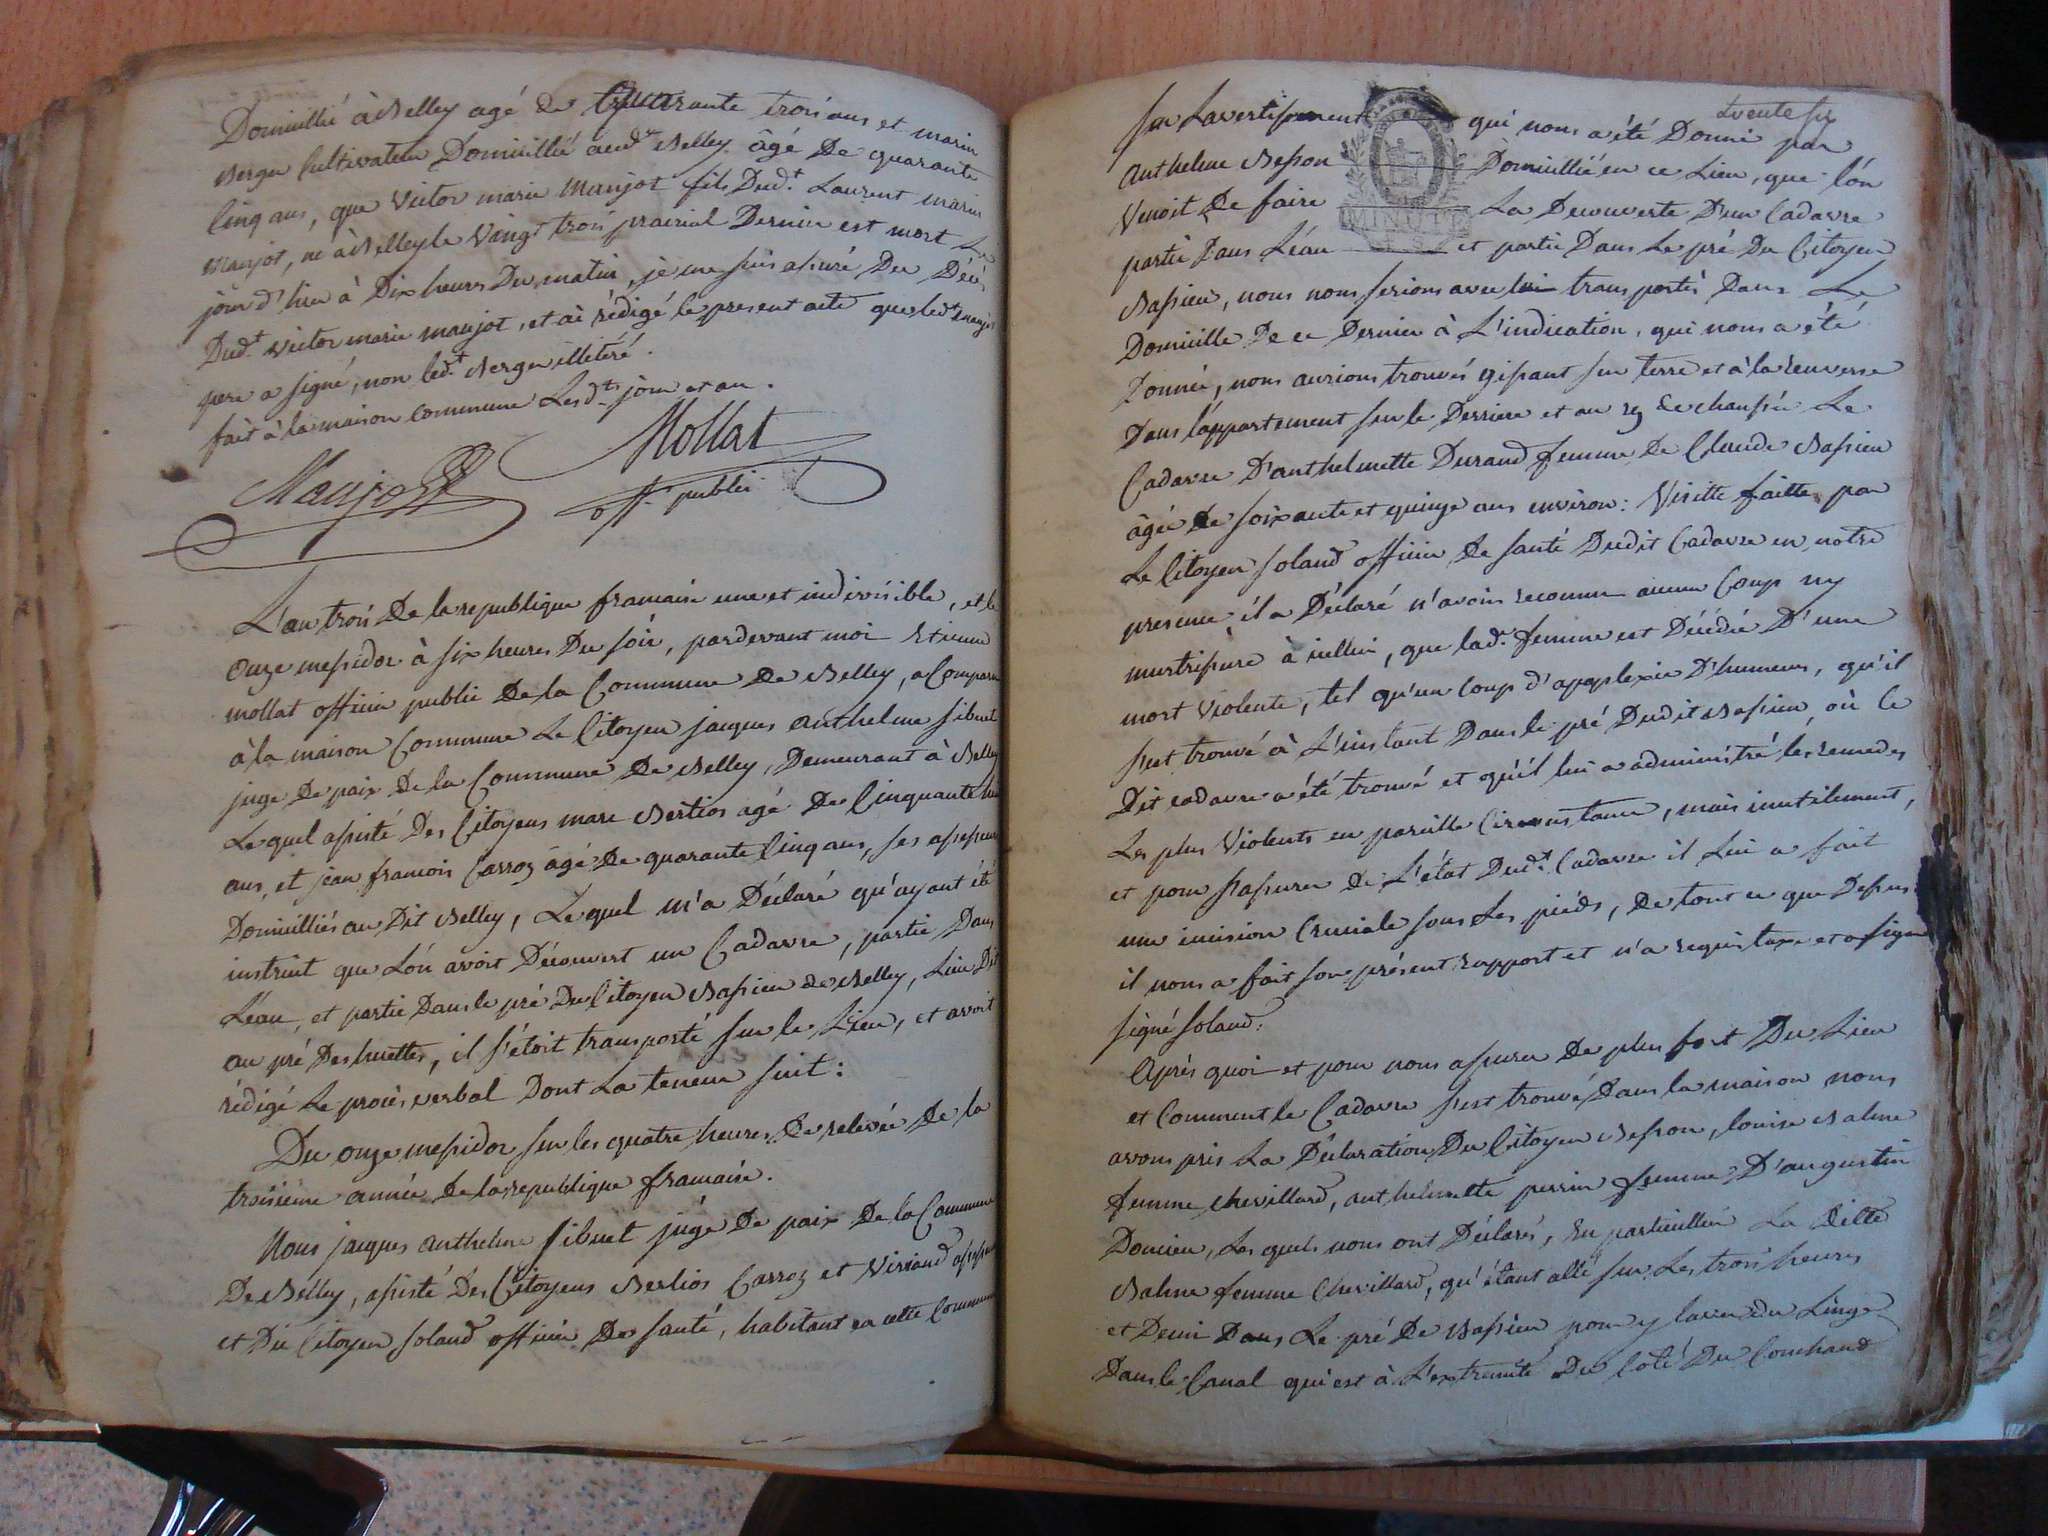 Domicillié à Belley agé de quarante trois ans et marin
Berger Cultivateur Domicillié aud.t Belley âgé De quarante
Cinq ans, que Victor marie Maujot fils Dud.t Laurent marin
Maujot, né à Belley le Vingt trois prairial Dernier est mort Le
jour d'hier à Dix heures Du matin, je me suis assuré Du Décès
Dud.t victor marie maujot, et ai rédigé le present acte que led.t maujot
pere a signé, non led.t Berger illiteré.
fait à la maison commune Lesd.ts jour et an.
Maujot
Mollat
off. public
L'an trois De la republique francaise une et indivisible, et le
Onze messidor à six heures Du soir, pardevant moi Etienne
mollat officier public De la Commune De Belley, a Comparu
à la maison Commune Le Citoyen jacques anthelme sibuet
juge De paix De la Commune De Belley, Demeurant à Belley
Le quel assisté Des Citoyens marc Berlios agé De Cinquante
ans, et jean francois Carroz âgé De quarante Cinq ans, ses assesseurs
Domicilliés au Dit Belley, Le quel m'a Déclaré qu'ayant été
instruit que L'on avoit Découvert un Cadavre, partie Dans
L'éau, et partie Dans le pré Du Citoyen Bassieu de Belley, Lieu Dit
au pré Des huettes, il s'étoit transporté sur le Lieu, et avoit
rédigé Le procès verbal Dont La teneur suit :
Du onze messidor sur les quatre heures De relevée De la
troisieme année De la republique francaise.
Nous jacques anthelme sibuet juge De paix De la Commune
De Belley, assisté Des Citoyens Berlios Carroz et Viviand
et Du Citoyen soland officier De santé, habitant en cette Commune
trente six
sur L'avertissement qui nous a été Donné par
Anthelme Besson Domicillié en ce Lieu, que l'on
Venoit De faire La Decouverte D'un Cadavre
MINUTE
partie Dans L'éau et partie Dans Le pré Du Citoyen
Bassieu, nous nous serions avec lui transportés Dans Le
Domicille De ce Dernier à L'indication, qui nous a été
Donnée, nous aurions trouvés gissant sur terre et à la renverse
Dans l'appartement sur le Derriere et au rez de chaussée Le
Cadavre D'anthelmette Durand femme De Claude Bassieu
âgée De soixante et quinze ans environ : Visitte faitte par
Le Citoyen soland officier De santé Dudit Cadavre en notre
presence il a Déclaré n'avoir reconnu aucun Coup ny
murtrissure à icellui, que lad.e femme est Décédée D'une
mort violente, tel qu'un Coup d'apoplexie D'humeurs, qu'il
s'est trouvé à L'instant Dans le pré Dudit Bassieu, où Ce
Dit cadavre a été trouvé et qu'il lui a administré les remedes
Les plus Violents en pareille Circonstance, mais inutilement,
et pour s'assurer De L'état Dud.t Cadavre il Lui a fait
une incision Cruciale sous Les pieds, De tout ce que Dessus
il nous a fait son présent rapport et n'a requis taxe et a signé
signé soland.
Après quoi et pour nous assurer De plus fort Du Lieu
et Comment le Cadavre s'est trouvé Dans la maison nous
avons pris La Déclaration Du Citoyen Besson, louise Balme
femme chevillard, anthelmette perrin femme D'augustin
Domieu, Les quels nous ont Déclarés, En particullier La ditte
Balme femme Chevillard, qu'étant allé sur Les trois heures
et Demi Dans Le pré De Bassieu pour y laver du Linge
Dans le Canal qui est à L'extremité Du Coté Du Couchand